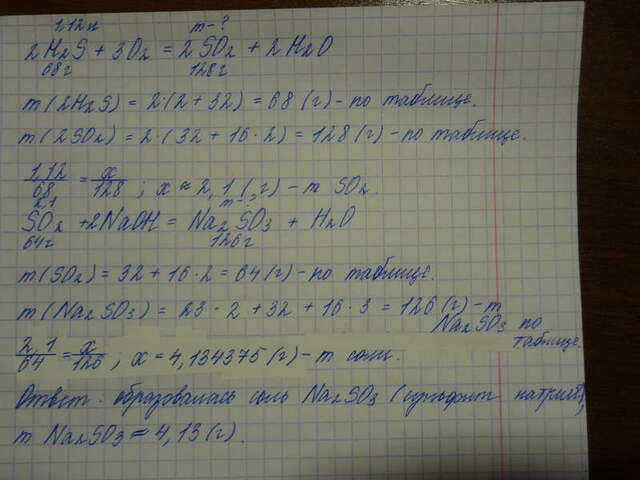 1,12л m-?
2H₂S + 3O₂ = 2SO₂ + 2H₂O
68г 128г
m(2H₂S) = 2·(2+32) = 68(г) - по таблице.
m(2SO₂) = 2·(32+16·2) = 128(г) - по таблице.
1,12/68 = x/128 ; x ≈ 2,1(г) - m SO₂.
2,1 m-?
SO₂ + 2NaOH = Na₂SO₃ + H₂O
64г 126г
m(SO₂) = 32 + 16·2 = 64(г) - по таблице.
m(Na₂SO₃) = 23·2 + 32 + 16·3 = 126(г) - m
Na₂SO₃ по
таблице.
2,1/64 = x/126 ; x = 4,134375(г) - m соли.
Ответ: образовалась соль Na₂SO₃ (сульфит натрия),
m Na₂SO₃ ≈ 4,13(г).